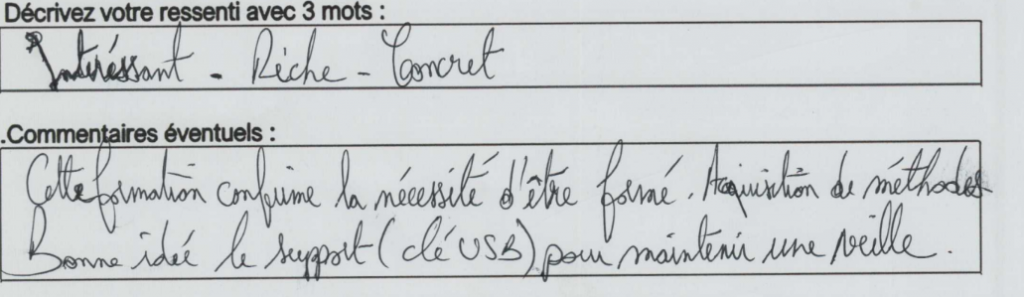 Décrivez votre ressenti avec 3 mots :
Intéréssant - Riche - Concret
.Commentaires éventuels :
Cette formation confirme la nécessité d'être formé. Acquisition de méthodes
Bonne idée le support (clé USB) pour maintenir une veille.